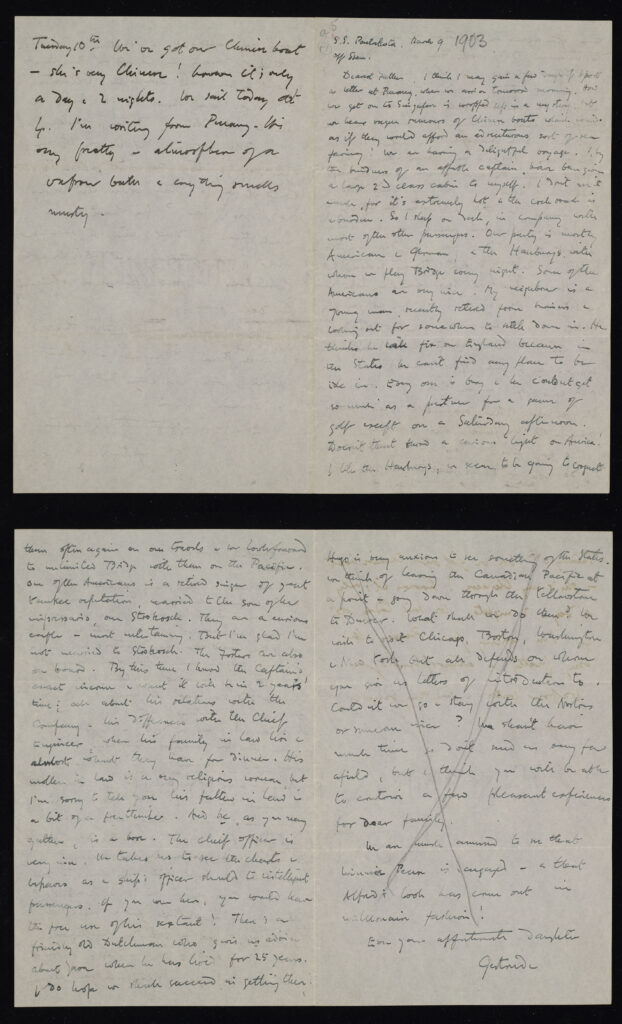 Tuesday 10th. We've got our Chinese boat
- she's very Chinese! however it's only
a day & 2 nights. We sail today at
4. I'm writing from Penang. It's
very pretty - atmosphere of a
vapour bath & everything smells
musty.
S.S. March 9 1903
off
Dearest Father. I think I may gain a few if I post
a letter at Penang, where we arrive tomorrow morning. How
we get on to Singapore is wropped up in a mystery, but
we hear vague rumours of Chinese boats which sound
as if they would afford an adventurous sort of sea
faring. We are having a delightful voyage. I, by
the kindness of an affable captain, have been given
a large 2nd class cabin to myself. I don't use it
much, for it's extremely hot & the cockroach is
abundant. So I sleep on deck, in company with
most of the other passengers. Our party is mostly
American & German, & the Hamburgs, with
whom we play Bridge every night. Some of the
Americans are very nice. My neighbour is a
young man, recently retired from business &
looking out for somewhere to settle down in. He
thinks he will fix on England because in
the States he can't find any place to be
idle in. Every one is busy & he couldn't get
so much as a partner for a game of
golf except on a Saturday afternoon.
Doesn't that shed a curious light on America.
I like the Hamburgs, we seem to be going to coquet
them often again on our travels & we look forward
to unlimited Bridge with them on the Pacific.
One of the Americans is a retired singer of great
Yankee reputation, married to the son of her
impresario, one Strakosch. They are a curious
couple - most entertaining. But I'm glad I'm
not married to Strakosch. The are also
on board. By this time I know the Captain's
exact income & what it will be in 2 years'
time; all about his relations with the
Company - his differences with the Chief
Engineer, where his family in law live &
almost what they have for dinner. His
mother in law is a very religious woman, but
I'm sorry to tell you his father in law is
a bit of a freethinker. And he, as you may
gather, is a bore. The chief officer is
very nice. He takes us to see the charts &
as a ship's officer should to intelligent
passengers. If you were here, you would have
the free use of his sextant! There's a
friendly old Dutchman who gives us advice
about Java where he has lived for 25 years.
I do hope we shall succeed in getting there.
Hugo is very anxious to see something of the States.
We think of leaving the Canadian Pacific at
a point & going down through the Yellowstone
to Denver. What shall we do then? We
wish to visit Chicago, Boston, Washington
& New York, but all depends on whom
you give us letters of introduction to.
Could we go & stay with the Nortons
or someone nice? We shan't have
much time so don't send us very far
afield, but I think you will be able
to contrive a few pleasant experiences
for Dear family.
We are much amused to see that
is engaged - & that
Alfred's book has come out in
millionaire fashion!
Ever your affectionate daughter
Gertrude